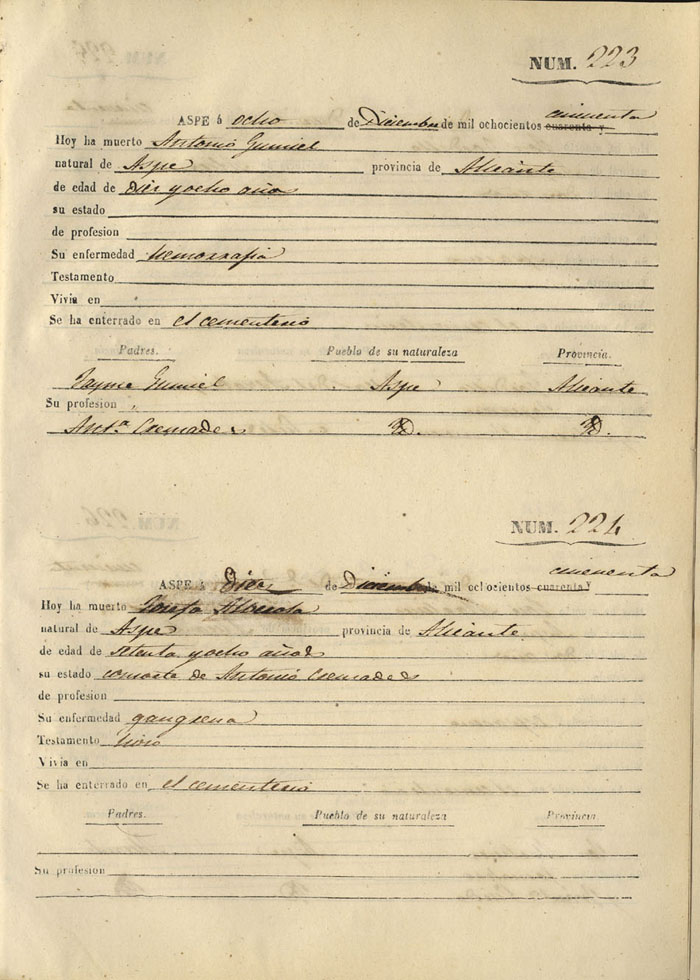 NUM. 223
ASPE á ocho de Diciembre de mil ochocientos cuarenta y cincuenta
Hoy ha muerto Antonio Gumiel
natural de Aspe provincia de Alicante
de edad de diez y ocho años
su estado
de profesion
Su enfermedad hemorrafia
Testamento
Vivia en
Se ha enterrado en el cementerio
Padres. Pueblo de su naturaleza Provincia.
Jayme Gumiel Aspe Alicante
Su profesion
Ant.ª Cremades Yd. Yd.
NUM. 224
ASPE á Diez de Diciembre de mil ochocientos cuarenta y cincuenta
Hoy ha muerto Josefa
natural de Aspe provincia de Alicante
de edad de setenta y ocho años
su estado consorte de Antonio Cremades
de profesion
Su enfermedad gangrena
Testamento hizo
Vivia en
Se ha enterrado en el cementerio
Padres. Pueblo de su naturaleza Provincia
Su profesion